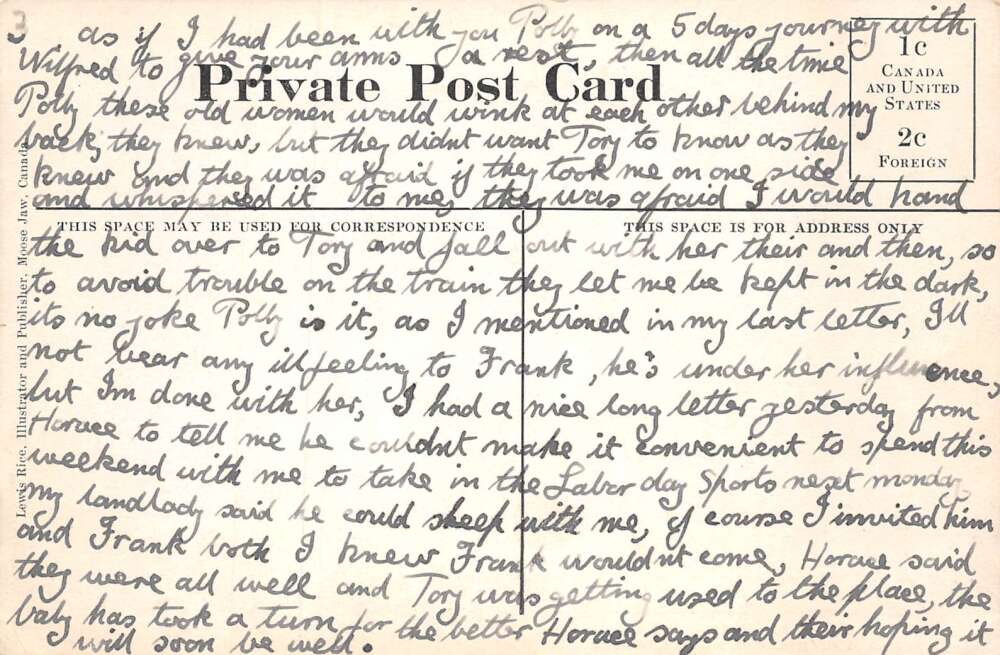 3 as if I had been with you Polly on a 5 days journey with
Wilfred to give your arms a rest, then all the time
Private Post Card
1c
CANADA
AND UNITED
STATES
2c
FOREIGN
Polly these old women would wink at each other behind my
back, they knew, but they didnt want Tory to know as they
knew and they was afraid if they took me on one side
and whispered it to me, they was afraid I would hand
THIS SPACE MAY BE USED FOR CORRESPONDENCE
THIS SPACE IS FOR ADDRESS ONLY
the kid over to Tory and fall out with her their and then, so
to avoid trouble on the train they let me be kept in the dark,
its no joke Polly is it, as I mentioned in my last letter, Ill
not bear any illfeeling to Frank, he's under her influence,
but Im done with her, I had a nice long letter yesterday from
Horace to tell me he couldnt make it convenient to spend this
weekend with me to take in the Labor day Sports next monday,
my landlady said he could sleep with me, of course I invited him
and Frank both I knew Frank wouldnt come, Horace said
they were all well and Tory was getting used to the place, the
baby has took a turn for the better Horace says and their hoping it
will soon be well.
Lewis Rice, Illustrator and Publisher, Moose Jaw, Canada